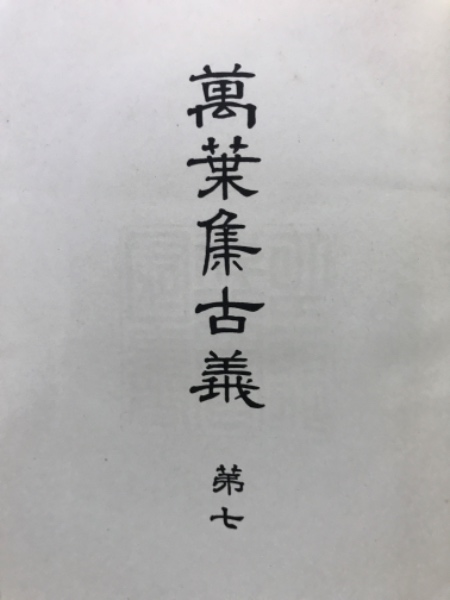 萬葉集古義
第七